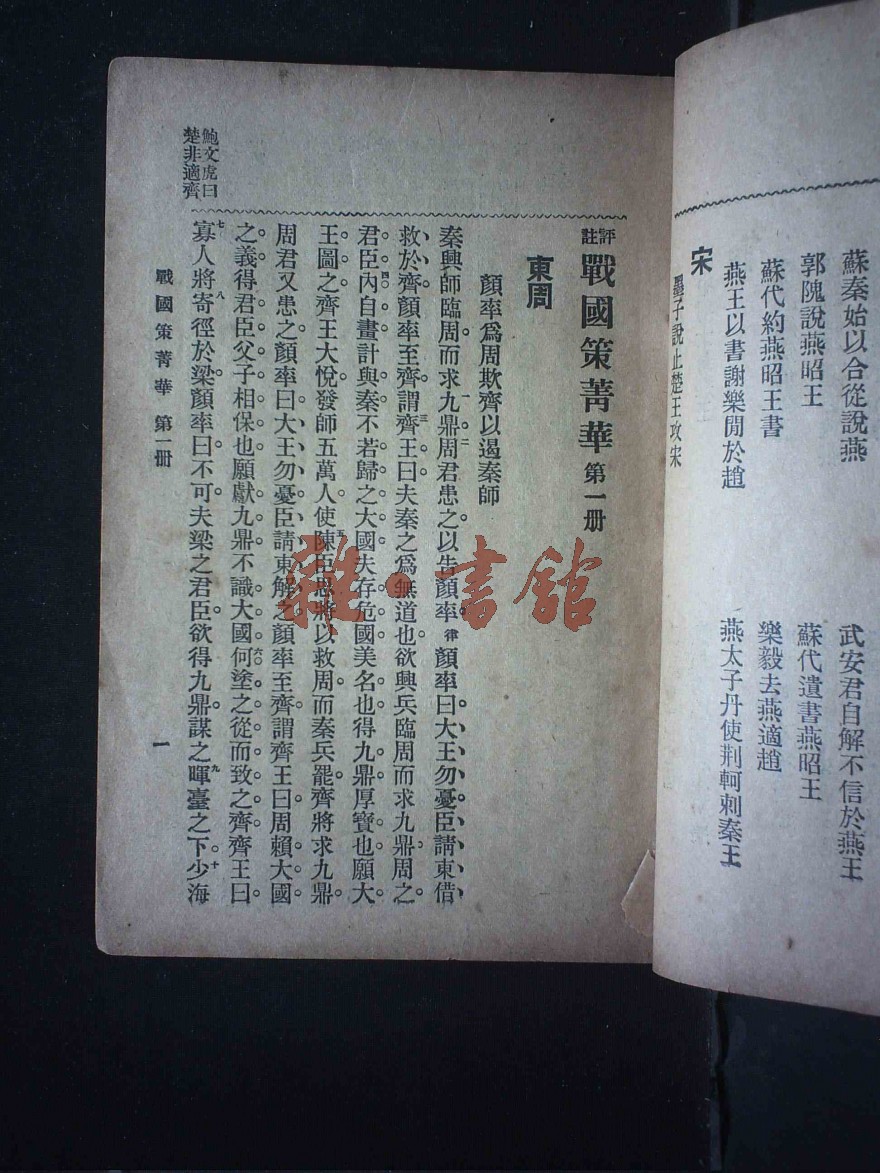 蘇秦始以合從說燕
武安君自解不信於燕王
郭隗說燕昭王
蘇代遺書燕昭王
蘇代約燕昭王書
樂毅去燕適趙
燕王以書謝樂閒於趙
燕太子丹使荆軻刺秦王
宋
墨子說止楚王攻宋
評註戰國策菁華第一册
東周
顏率爲周欺齊以遏秦師
秦興師臨周而求九鼎一周君二患之以告顏率律顏率曰大王勿憂臣請東借
救於齊顏率至齊謂三齊王曰夫秦之爲無道也欲興兵臨周而求九鼎周之
君臣內自四畫計與秦不若歸之大國夫存危國美名也得九鼎厚寶也願大
王圖之齊王大悅發師五萬人使五陳臣思將以救周而秦兵罷齊將求九鼎
周君又患之顏率曰大王勿憂臣請東解之顏率至齊謂齊王曰周賴大國
之義得君臣父子相保也願獻九鼎不識大國何六塗之從而致之齊齊王曰
七寡人將八寄徑於梁顏率曰不可夫梁之君臣欲得九鼎謀之九暉臺之下十少海
鮑文虎曰
楚非適齊
戰國策菁華 第一册
一
雜·書館